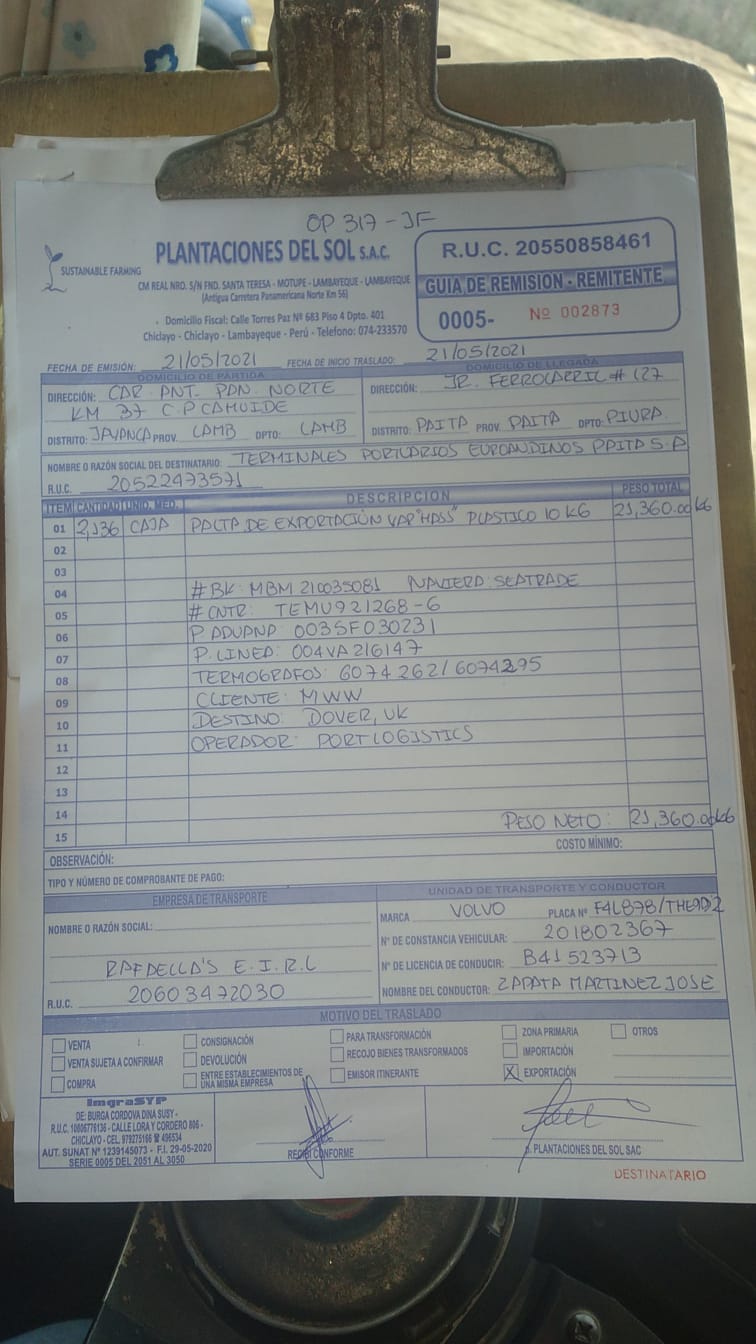 OP 317-JF
SUSTAINABLE FARMING
PLANTACIONES DEL SOL S.A.C.
CM REAL NRD. S/N FND. SANTA TERESA - MOTUPE - LAMBAYEQUE - LAMBAYEQUE
(Antigua Carretera Panamericana Norte Km 56)
Domicilio Fiscal: Calle Torres Paz Nº 683 Piso 4 Dpto. 401
Chiclayo - Chiclayo - Lambayeque - Perú - Telefono: 074-233570
R.U.C. 20550858461
GUIA DE REMISION - REMITENTE
0005- Nº 002873
FECHA DE EMISIÓN: 21/05/2021 FECHA DE INICIO TRASLADO: 21/05/2021
DOMICILIO DE PARTIDA
DIRECCIÓN: CAR ANT. PAN. NORTE
KM 37 C.P CAMUIDE
DISTRITO: JAYANCA PROV. LAMB DPTO: LAMB
DOMICILIO DE LLEGADA
DIRECCIÓN: JR. FERROCARRIL # 127
DISTRITO: PAITA PROV. PAITA DPTO: PIURA
NOMBRE O RAZÓN SOCIAL DEL DESTINATARIO: TERMINALES PORTUARIOS EUROANDINOS PAITA S.A
R.U.C. 20522473571
ITEM CANTIDAD UNID. MED. DESCRIPCION PESO TOTAL
01 2,136 CAJA PALTA DE EXPORTACIÓN VAR "HASS" PLASTICO 10 KG 21,360.00 KG
02
03
04 # BK: MBM210035081 NAVIERA: SEATRADE
05 # CNTR: TEMU921268-6
06 P. ADUANA: 003SF030231
07 P. LINEA: 004VA216147
08 TERMOGRAFOS: 6074262/6074295
09 CLIENTE: MWW
10 DESTINO: DOVER, UK
11 OPERADOR: PORT LOGISTICS
12
13
14 PESO NETO: 21,360.00 KG
15
OBSERVACIÓN: COSTO MÍNIMO:
TIPO Y NÚMERO DE COMPROBANTE DE PAGO:
EMPRESA DE TRANSPORTE
NOMBRE O RAZÓN SOCIAL:
RAFAELLA'S E.I.R.L
R.U.C. 20603472030
UNIDAD DE TRANSPORTE Y CONDUCTOR
MARCA VOLVO PLACA Nº F4L878/THE9D2
Nº DE CONSTANCIA VEHICULAR: 201802367
Nº DE LICENCIA DE CONDUCIR: B41523713
NOMBRE DEL CONDUCTOR: ZAPATA MARTINEZ JOSE
MOTIVO DEL TRASLADO
VENTA CONSIGNACIÓN PARA TRANSFORMACIÓN ZONA PRIMARIA OTROS
VENTA SUJETA A CONFIRMAR DEVOLUCIÓN RECOJO BIENES TRANSFORMADOS IMPORTACIÓN
COMPRA ENTRE ESTABLECIMIENTOS DE UNA MISMA EMPRESA EMISOR ITINERANTE X EXPORTACIÓN
ImgraSYP
DE: BURGA CORDOVA DINA SUSY -
R.U.C. 10606776136 - CALLE LORA Y CORDERO 806 -
CHICLAYO - CEL. 979275166 ☎ 496534
AUT. SUNAT Nº 1239145073 - F.I. 29-05-2020
SERIE 0005 DEL 2051 AL 3050
RECIBI CONFORME
p. PLANTACIONES DEL SOL SAC
DESTINATARIO